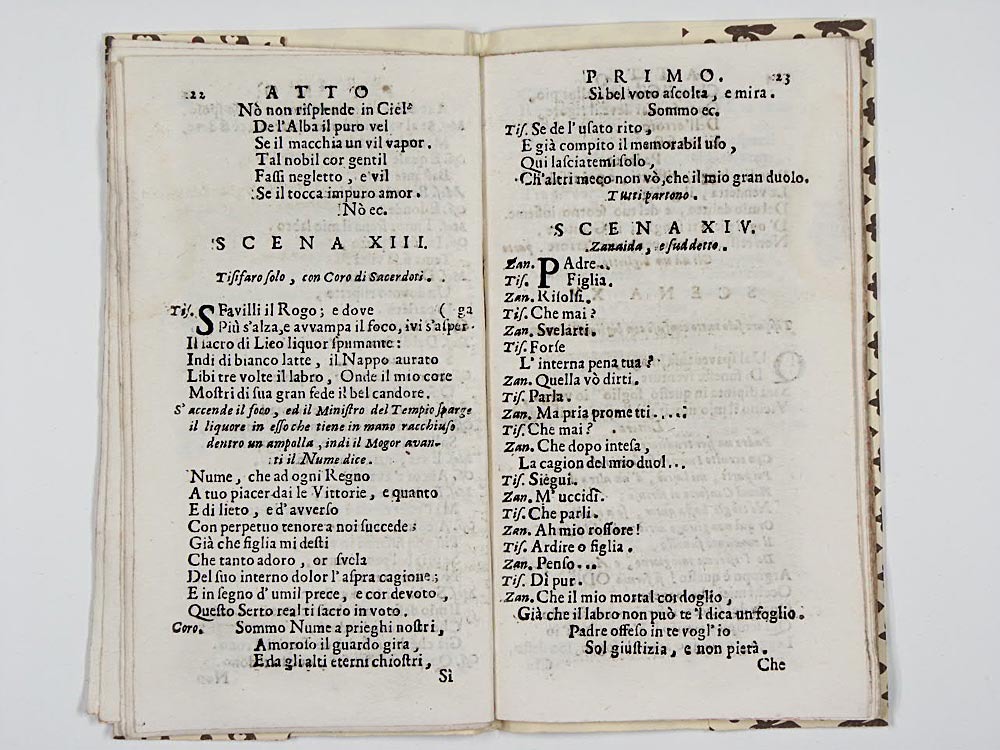 :22 ATTO
Nò non risplende in Ciel
De l'Alba il puro vel
Se il macchia un vil vapor.
Tal nobil cor gentil
Fassi negletto, e vil
Se il tocca impuro amor.
Nò ec.
SCENA XIII.
Tisifaro solo, con Coro di Sacerdoti.
Tis. SFavilli il Rogo; e dove ( ga
Più s'alza, e avvampa il foco, ivi s'asper-
Il sacro di Lieo liquor spumante:
Indi di bianco latte, il Nappo aurato
Libi tre volte il labro, Onde il mio core
Mostri di sua gran fede il bel candore.
S'accende il foco, ed il Ministro del Tempio sparge
il liquore in esso che tiene in mano racchiuso
dentro un ampolla, indi il Mogor avan-
ti il Nume dice.
Nume, che ad ogni Regno
A tuo piacer dai le Vittorie, e quanto
E di lieto, e d'avverso
Con perpetuo tenore a noi succede;
Già che figlia mi desti
Che tanto adoro, or svela
Del suo interno dolor l'aspra cagione;
E in segno d'umil prece, e cor devoto,
Questo Serto real ti sacro in voto.
Coro. Sommo Nume a prieghi nostri,
Amoroso il guardo gira,
E da gli alti eterni chiostri,
Si
PRIMO. :23
Si bel voto ascolta, e mira.
Sommo ec.
Tis. Se de l'usato rito,
E già compito il memorabil uso,
Qui lasciatemi solo,
Ch'altri meco non vò, che il mio gran duolo.
Tutti partono.
SCENA XIV.
Zanaida, e suddetto.
Zan. PAdre..
Tis. Figlia.
Zan. Risolsi.
Tis. Che mai?
Zan. Svelarti.
Tis. Forse
L'interna pena tua?
Zan. Quella vò dirti.
Tis. Parla.
Zan. Ma pria prometti....:
Tis. Che mai?
Zan. Che dopo intesa,
La cagion del mio duol...
Tis. Siegui.
Zan. M'uccidi.
Tis. Che parli.
Zan. Ah mio rossore!
Tis. Ardire o figlia.
Zan. Penso...
Tis. Dì pur.
Zan. Che il mio mortal cordoglio,
Già che il labro non può te'l dica un foglio.
Padre offeso in te vogl'io
Sol giustizia, e non pietà.
Che